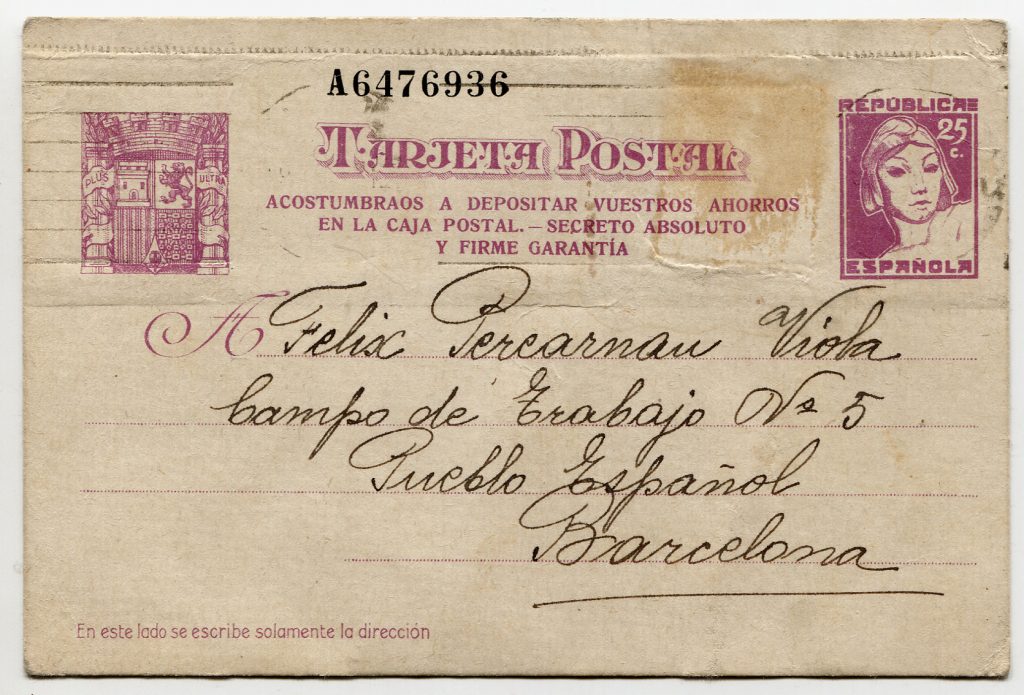 A6476936
REPÚBLICA
25
c.
PLUS ULTRA
TARJETA POSTAL
ACOSTUMBRAOS A DEPOSITAR VUESTROS AHORROS
EN LA CAJA POSTAL.—SECRETO ABSOLUTO
Y FIRME GARANTÍA
ESPAÑOLA
A Felix Percarnau Viola
Campo de Trabajo Nº 5
Pueblo Español
Barcelona
En este lado se escribe solamente la dirección